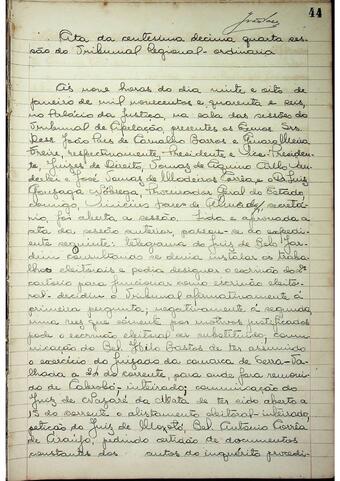 44
Ata da centesima decima quarta ses-
são do Tribunal Regional - ordinaria
Às nove horas do dia vinte e oito de
janeiro de mil novecentos e quarenta e seis,
no Palacio da Justiça, na sala das sessões do
Tribunal de Apelação, presentes os Exmos Srs.
Dess. João Paes de Carvalho Barros e
Freire, respectivamente Presidente e Vice-Presiden-
te, Juizes de Direito Tomaz de Aquino
e José Tomaz de Medeiros Corrêa e o Dr. Luiz
Gonzaga Nobrega, Procurador Geral do Estado,
comigo, de Almeida, secretá-
rio, foi aberta a sessão. Lida e aprovada a
ata da sessão anterior, passou-se ao expedi-
ente seguinte: telegrama do Juiz de Belo Jar-
dim consultando se devia instalar os traba-
lhos eleitorais e podia designar o escrivão do 2º
cartorio para funcionar como escrivão eleito-
ral - decidiu o Tribunal afirmativamente á
primeira pergunta; negativamente á segunda,
uma vez que sómente por motivos justificados
pode o escrivão eleitoral ser substituido; comu-
nicação do Bel. Bastos de ter assumido
o exercicio do Juizado da comarca de Serra Ta-
lhada a 24 do corrente, para onde fora removi-
do de Cabrobó - inteirado; comunicação do
Juiz de Nazaré da Mata de ter sido aberto a
15 do corrente o alistamento eleitoral - inteirado;
petição do Juiz de Moxotó, Bel. Antônio Corrêa
de Araujo, pedindo certidão de documentos
constantes dos autos do inquerito procedi-